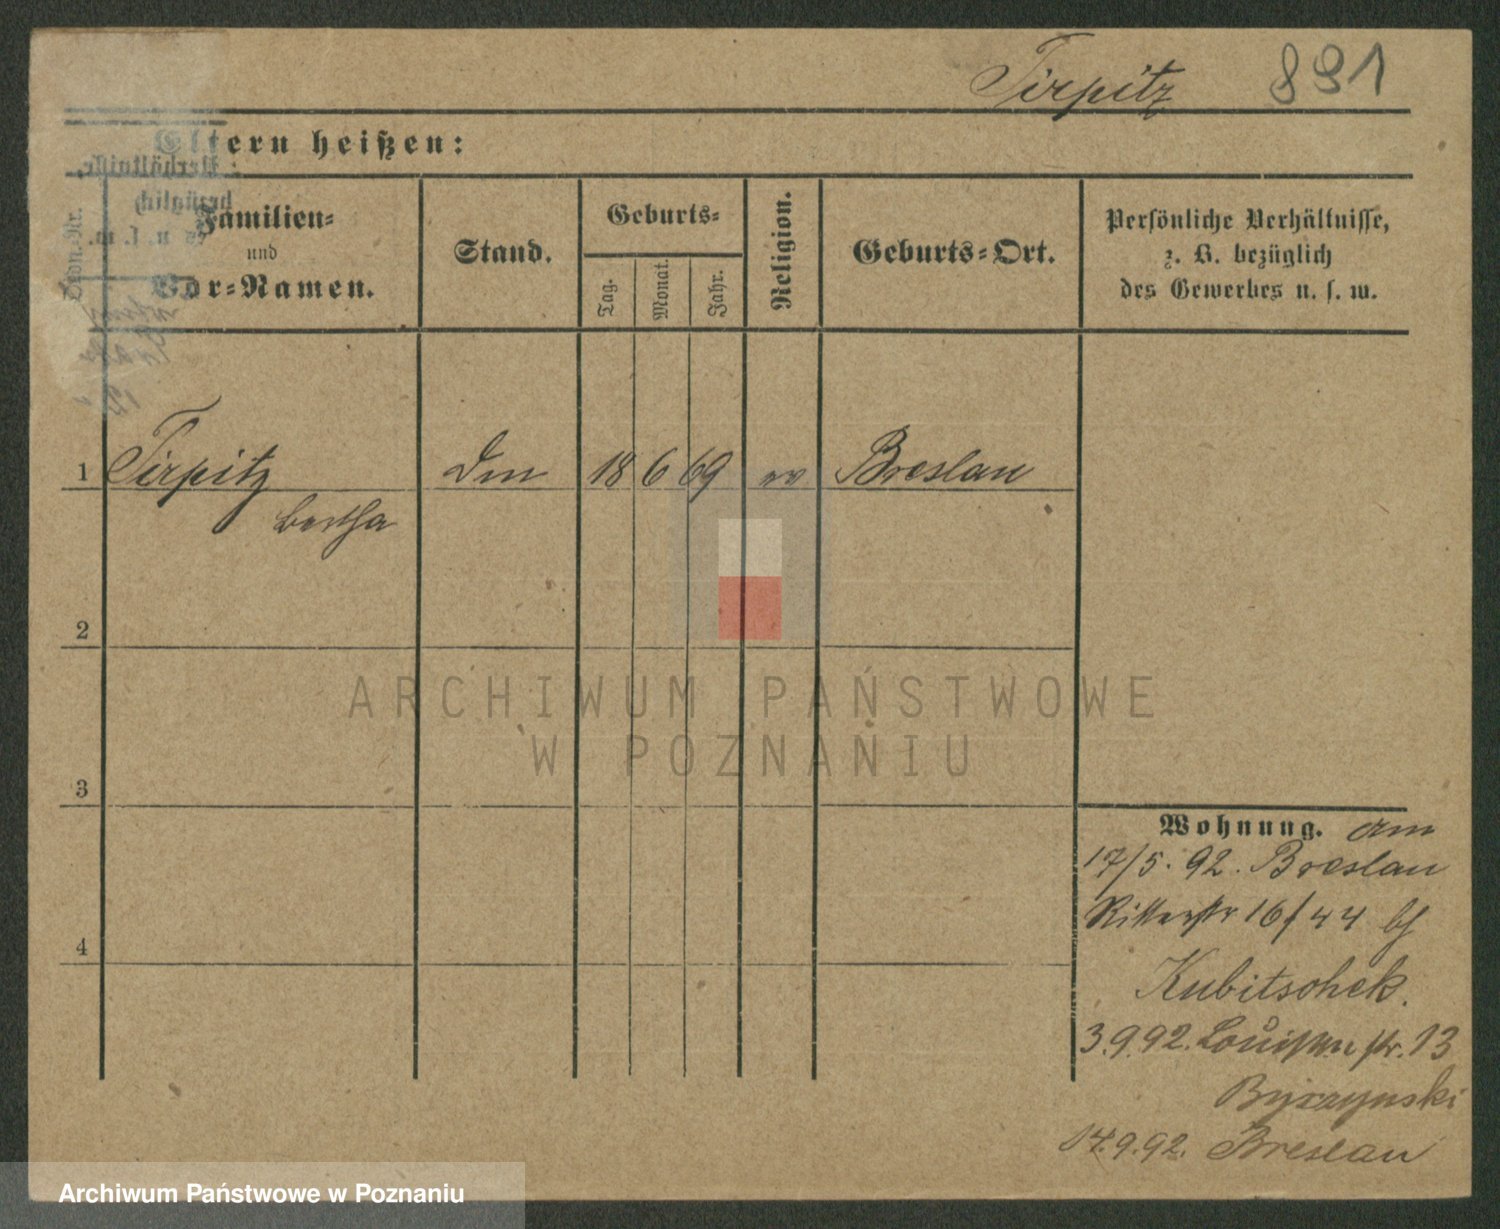 Tirpitz 891
Eltern heißen:
Familien=
und
Vor=Namen.
Stand.
Geburts=
Tag.
Monat.
Jahr.
Religion.
Geburts=Ort.
Persönliche Verhältnisse,
z. B. bezüglich
des Gewerbes u. s. w.
1 Tirpitz 18 6 69 ev Breslau
Bertha
2
3
4
Wohnung. am
17/5. 92. Breslau
Ritterstr 16/44 bf
Kubitschek.
3.9.92. Louisenstr. 13
Byrzynski
14.9.92. Breslau
ARCHIWUM PAŃSTWOWE
W POZNANIU
Archiwum Państwowe w Poznaniu